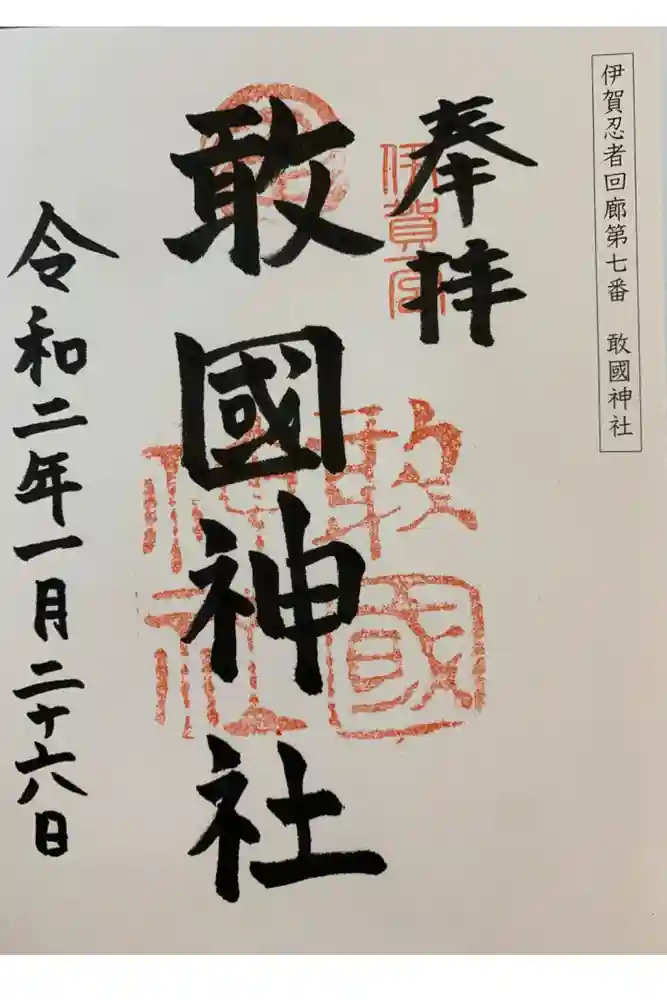 伊賀忍者回廊第七番　敢國神社
奉拝
伊賀一宮
敢國神社
敢國
神社
令和二年一月二十六日